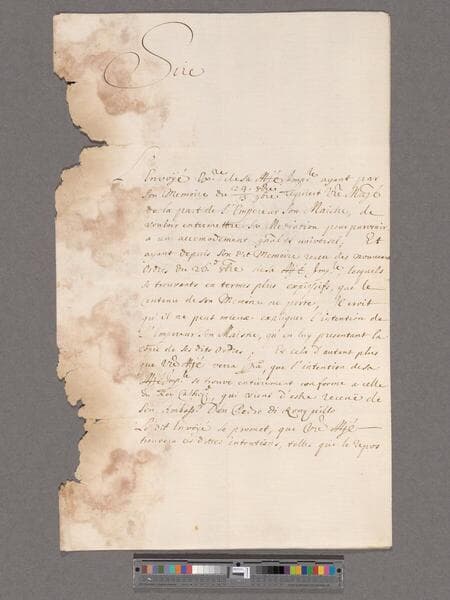 Sire
L'Envoyé Exre de sa Mté Imple ayant par
son Memoire du requiert Vre Majté
de la part de l'Empereur son Maistre, de
vouloir entremettre sa Mediation pour parvenir
a un accomodement gnal et universel, Et
ayant depuis son dit Memoire receu des nouveaux
Ordres du de sa Mté Imple lesquels
se trouvants en termes plus expressifs, que le
contenu de son Memoire ne porte, Il croit
qu'il ne peut mieux expliquer l'intention de
l'Empereur son Maistre, qu'en luy presentant la
copie de ses dits Ordres, Et cela d'autant plus
que Vre Mté verra que l'intention de sa
Mté Imple se trouve entierement conforme a celle
du Roy Catholique, qui vient d'estre receue de
son Ambassr Don Pedro di Ronquillo
Le dit Envoyé se promet, que Vre Mté
trouvera ces dittes intentions, telles que le repos